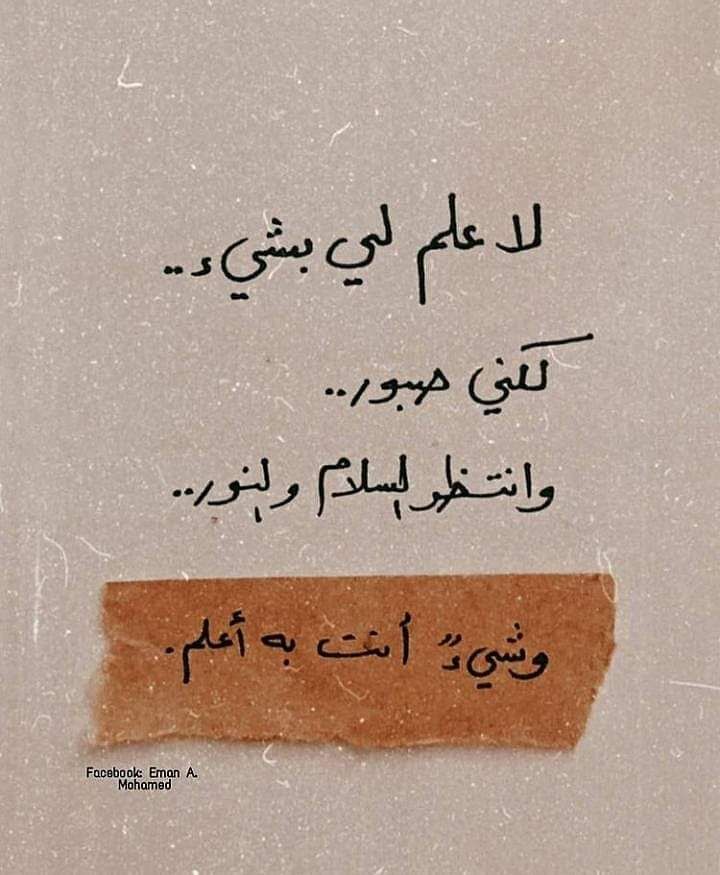 لا علم لي بشيء..
لكني صبور..
وانتظر السلام والنور..
وشيءٌ أنت به أعلم.
Facebook: Eman A.
Mohamed